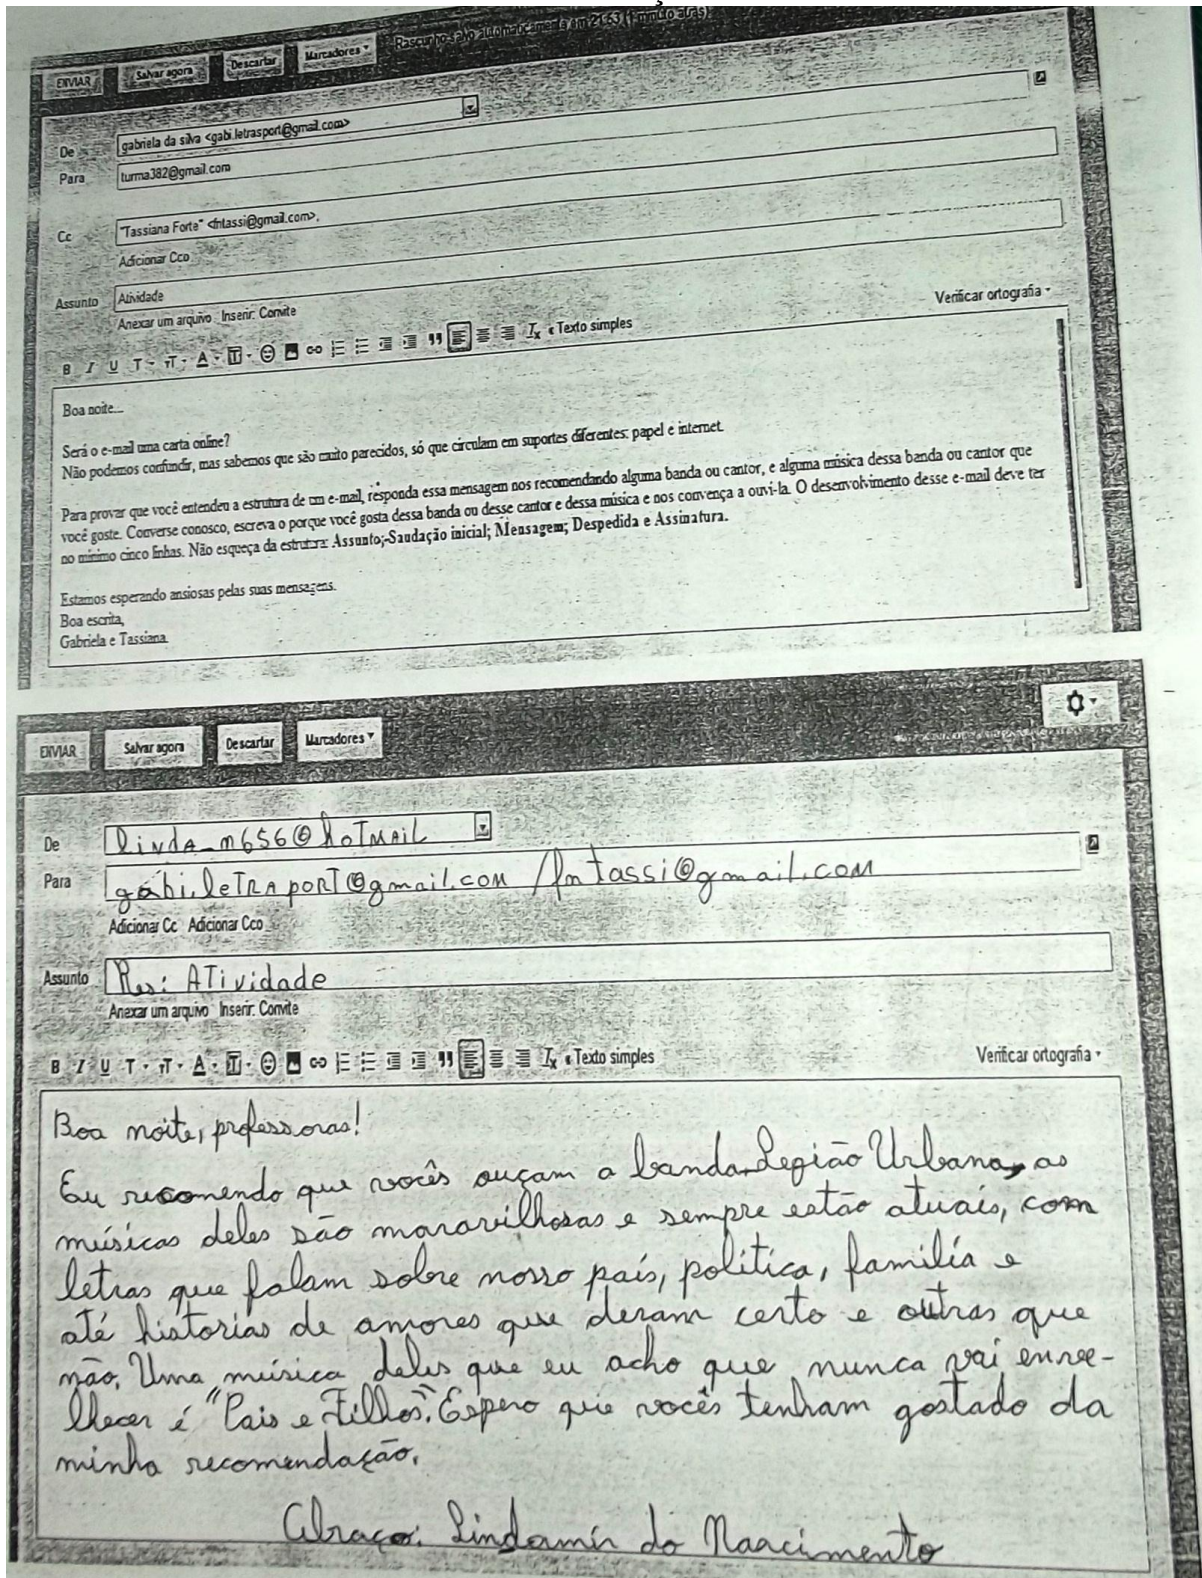 Rascunho salvo automaticamente em 21:53 (1 minuto atrás)
ENVIAR Salvar agora Descartar Marcadores
De gabriela da silva <gabi.letrasport@gmail.com>
Para turma382@gmail.com
Cc "Tassiana Forte" <fntassi@gmail.com>,
Adicionar Cco
Assunto Atividade
Anexar um arquivo Inserir: Convite
Verificar ortografia
B I U T T A T « Texto simples
Boa noite...
Será o e-mail uma carta online?
Não podemos confundir, mas sabemos que são muito parecidos, só que circulam em suportes diferentes: papel e internet.
Para provar que você entendeu a estrutura de um e-mail, responda essa mensagem nos recomendando alguma banda ou cantor, e alguma música dessa banda ou cantor que
você goste. Converse conosco, escreva o porque você gosta dessa banda ou desse cantor e dessa música e nos convença a ouvi-la. O desenvolvimento desse e-mail deve ter
no mínimo cinco linhas. Não esqueça da estrutura: Assunto;-Saudação inicial; Mensagem; Despedida e Assinatura.
Estamos esperando ansiosas pelas suas mensagens.
Boa escrita,
Gabriela e Tassiana.
ENVIAR Salvar agora Descartar Marcadores
De linda_n656@hoTMAIL
Para gabi.leTRAporT@gmail.com /fntassi@gmail.com
Adicionar Cc Adicionar Cco
Assunto Res: ATividade
Anexar um arquivo Inserir: Convite
B I U T T A T « Texto simples Verificar ortografia
Boa noite, professoras!
Eu recomendo que vocês ouçam a banda Legião Urbana, as
músicas deles são maravilhosas e sempre estão atuais, com
letras que falam sobre nosso país, política, família e
até historias de amores que deram certo e outras que
não. Uma música deles que eu acho que nunca vai enve-
lhecer é "Pais e Filhos". Espero que vocês tenham gostado da
minha recomendação.
Abraço: Lindamir do Nascimento